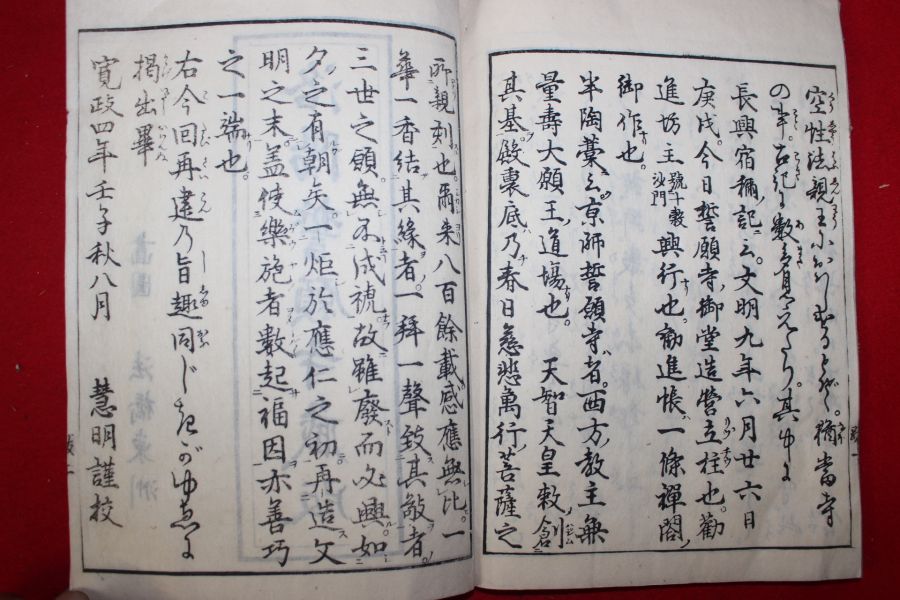 空性法親王におハしますとぞ。猶當寺
の事。古記に数多見えたり。其中に
長興宿禰記云。文明九年六月廿六日
庚戌。今日誓願寺御堂造營立柱也。勸
進坊主號十穀沙門興行也。勸進帳一條禪閤
御作也。
半陶藁云。京師誓願寺者。西方教主無
量壽大願王道場也。 天智天皇敕創
其基。殿裏底乃春日慈悲萬行菩薩之
所親刻也。爾來八百餘載感應無比。一
華一香結其縁者。一拜一聲致其敬者。
三世之願無不成就。故雖廢而必興如
夕之有朝矣。一炬於應仁之初再造文
明之末。蓋使樂施者數起福因亦善巧
之一端也。
右今回再建乃旨趣同じきがゆゑに
掲出畢
寛政四年壬子秋八月 慧明謹校